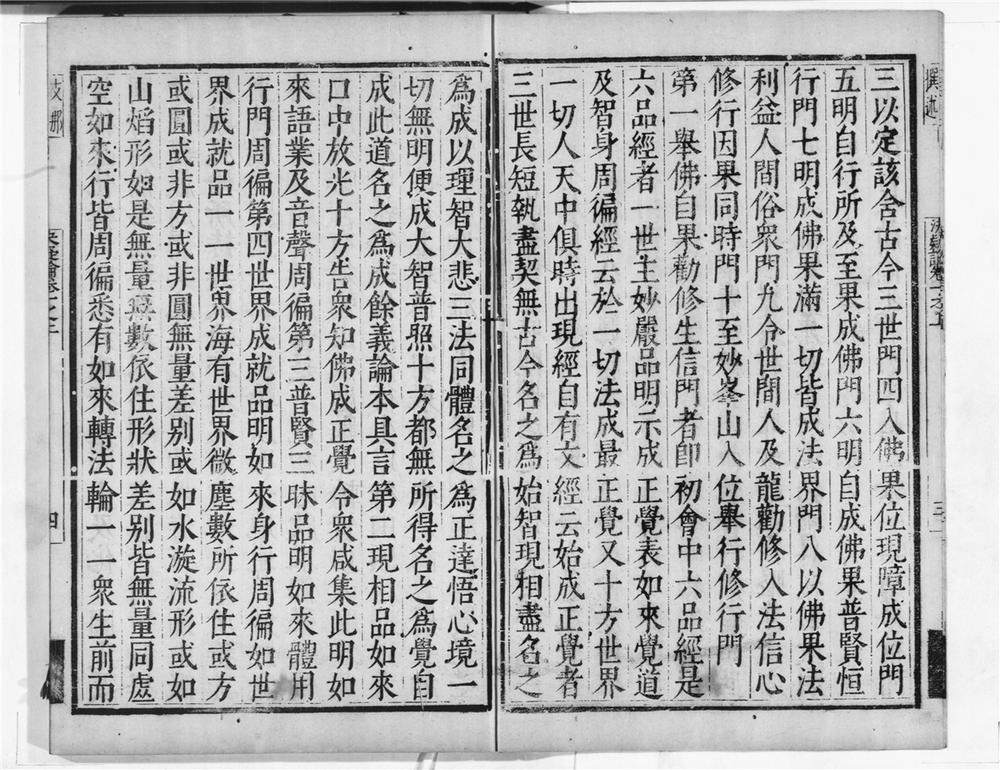 三以定該含古今三世門四入佛果位現障成位門
五明自行所及至果成佛門六明自成佛果普賢恒
行門七明成佛果滿一切皆成法界門八以佛果法
利益人間俗衆門九令世間人及龍勸修入法信心
修行因果同時門十至妙峯山入位舉行修行門
第一舉佛自果勸修生信門者即初會中六品經是
六品經者一世主妙嚴品明示成正覺表如來覺道
及智身周徧經云於一切法成最正覺又十方世界
一切人天中俱時出現經自有文經云始成正覺者
三世長短執盡契無古今名之爲始智現相盡名之
爲成以理智大悲三法同體名之爲正達悟心境一
切無明便成大智普照十方都無所得名之爲覺自
成此道名之爲成餘義論本具言第二現相品如來
口中放光十方告衆知佛成正覺令衆咸集此明如
來語業及音聲周徧第三普賢三昧品明如來體用
行門周徧第四世界成就品明如來身行周徧如世
界成就品一一世界海有世界微塵數所依住或方
或圓或非方或非圓無量差別或如水漩流形或如
山熖形如是無量無數依住形狀差別皆無量同處
空如來行皆周徧悉有如來轉法輪一一衆生前而
三
四